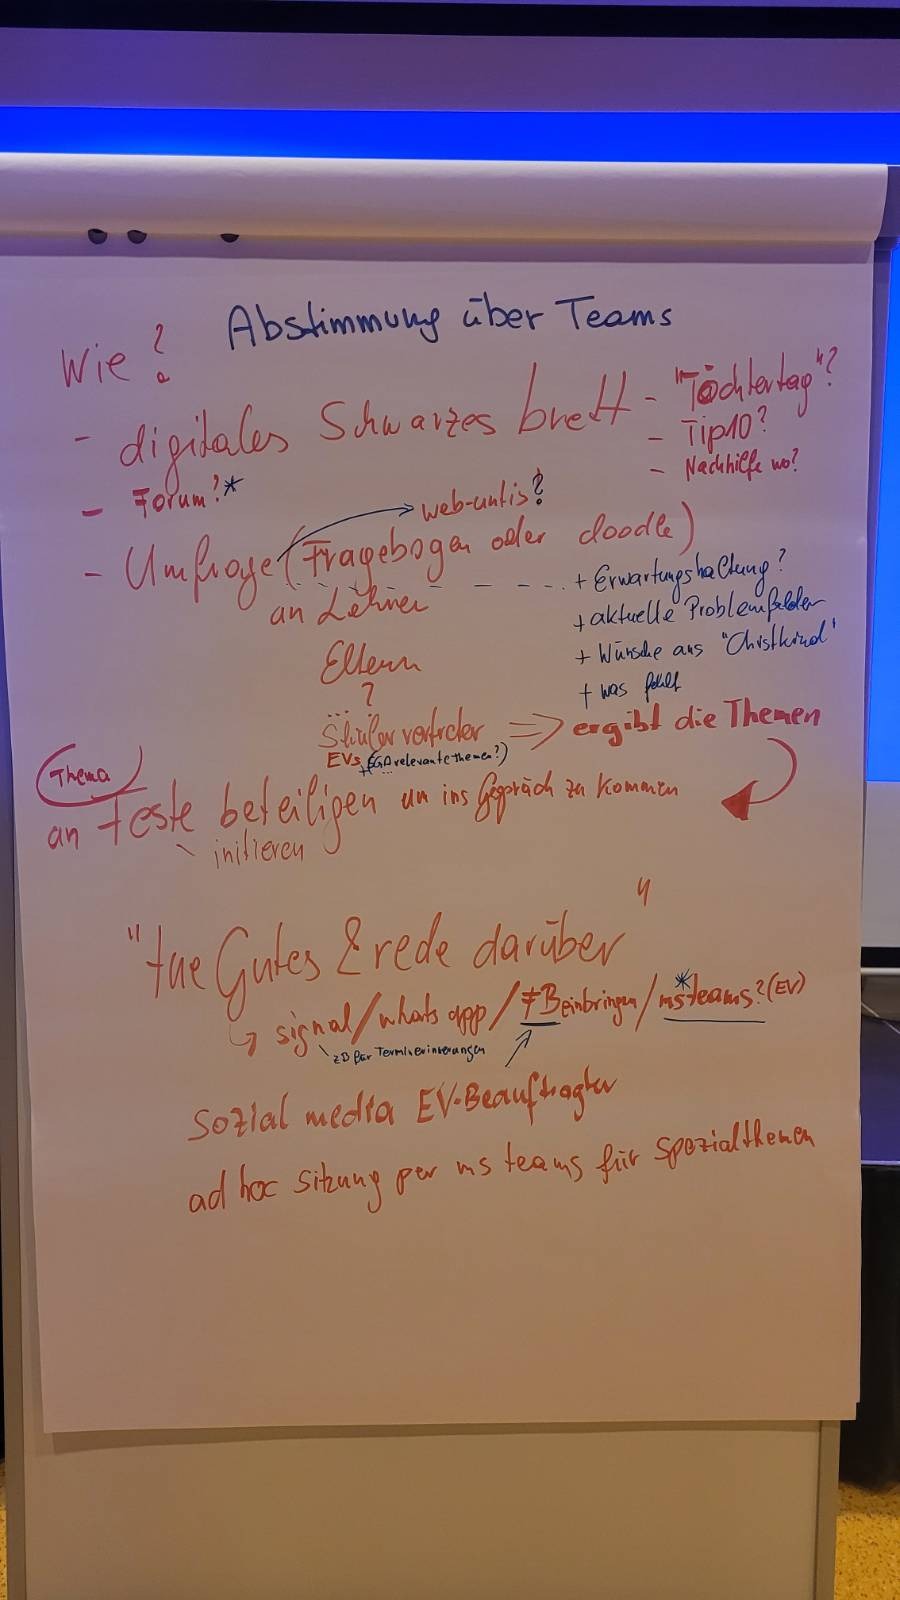 Abstimmung über Teams
Wie?
- digitales Schwarzes brett - "Töchtertag"?
- Tip10?
- Nachhilfe wo?
- Forum?*
web-untis?
- Umfrage (Fragebogen oder doodle)
an Lehrer
+ Erwartungshaltung?
+ aktuelle Problemfelder
+ Wünsche ans "Christkind"
+ was fehlt
Eltern
?
...
Schülervertreter => ergibt die Themen
EVs (SGA relevante themen?)
Thema
an Feste beteiligen um ins Gepräch zu kommen
initieren
"tue Gutes & rede darüber"
signal/whats app/FB einbringen/ms teams?*(EV)
zB für Terminerinnerungen
sozial media EV-Beauftragter
ad hoc sitzung per ms teams für spezialthemen